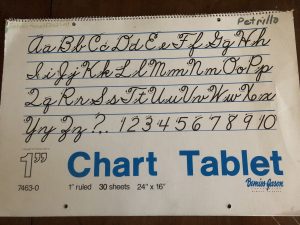 Petrillo
Aa Bb Cc Dd Ee Ff Gg Hh
Ii Jj Kk Ll Mm Nn Oo Pp
Qq Rr Ss Tt Uu Vv Ww Xx
Yy Zz ?.. 1 2 3 4 5 6 7 8 9 10
1” Chart Tablet
7463-0 1” ruled 30 sheets 24” x 16” Bemiss-Jason